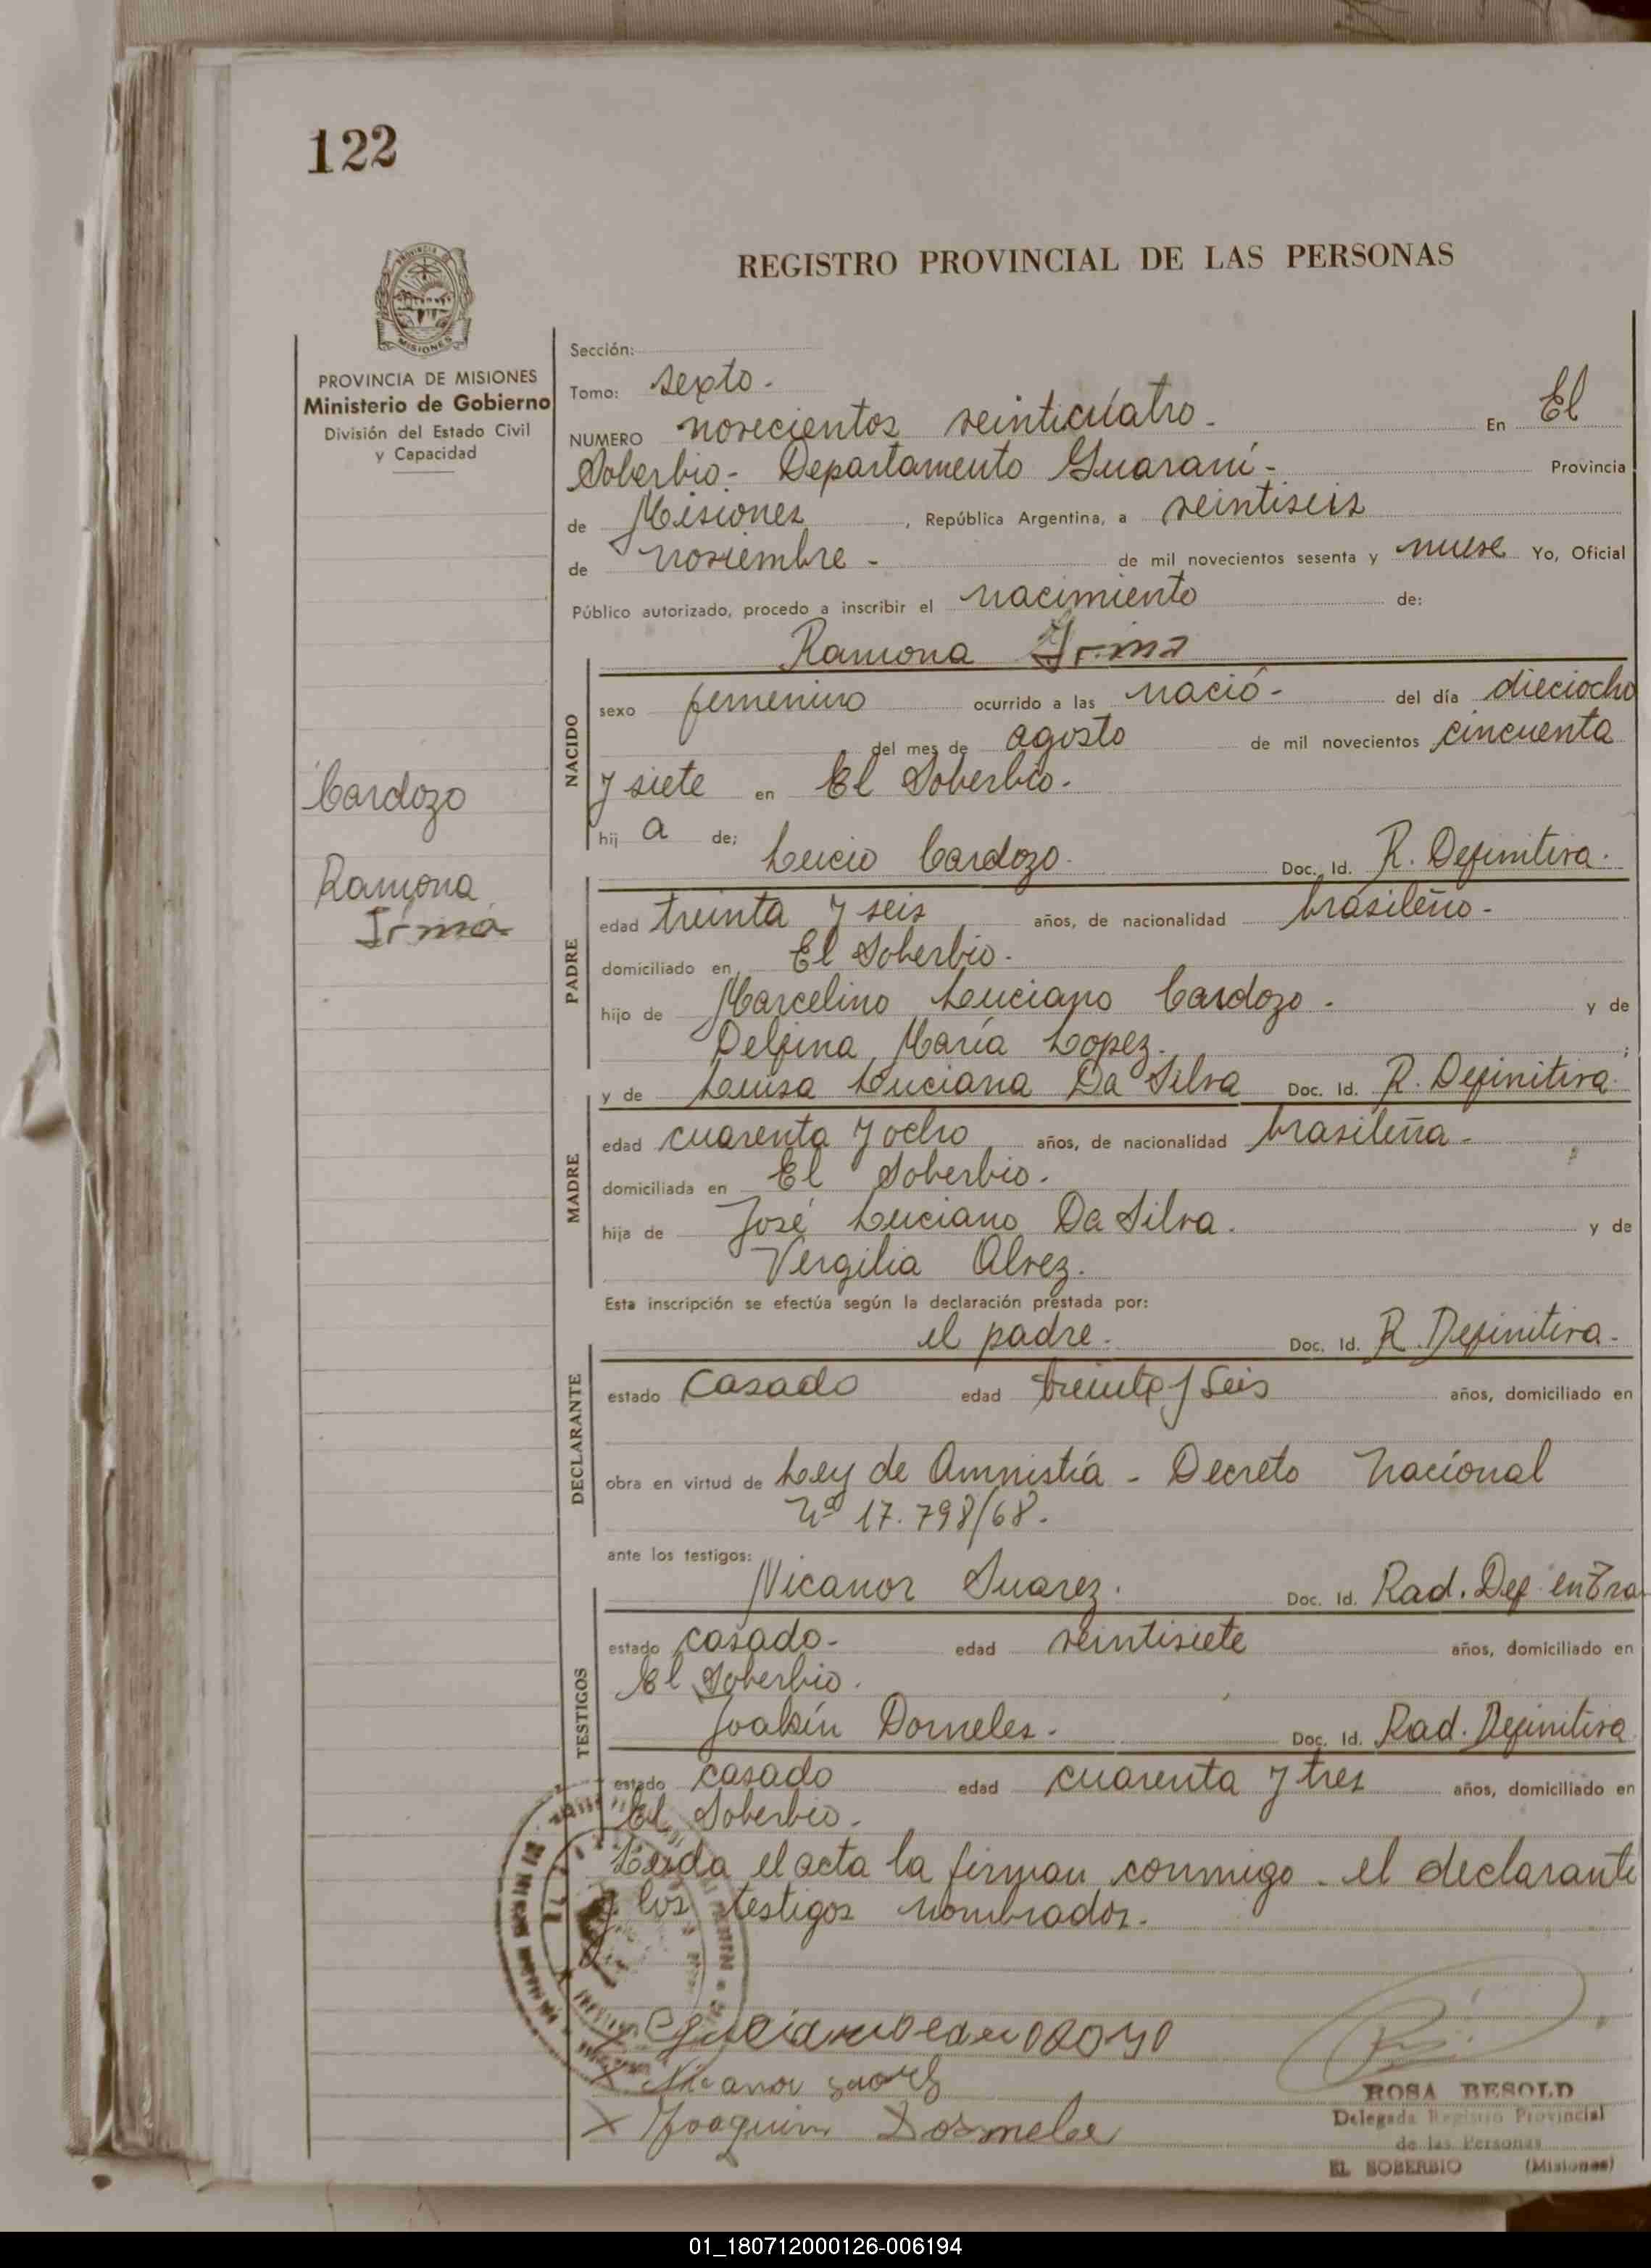 122
REGISTRO PROVINCIAL DE LAS PERSONAS
PROVINCIA
MISIONES
PROVINCIA DE MISIONES
Ministerio de Gobierno
División del Estado Civil
y Capacidad
Cardozo
Ramona
Irma
Sección:
Tomo: sexto.
NUMERO novecientos veinticuatro. En El
Soberbio - Departamento Guaraní - Provincia
de Misiones, República Argentina, a veintiseis
de noviembre - de mil novecientos sesenta y nueve Yo, Oficial
Público autorizado, procedo a inscribir el nacimiento de:
Ramona Irma
NACIDO
sexo femenino ocurrido a las nació - del día dieciocho
del mes de agosto de mil novecientos cincuenta
y siete en El Soberbio.
hij a de;
Lucio Cardozo. Doc. Id. R. Definitiva.
PADRE
edad treinta y seis años, de nacionalidad brasileño -
domiciliado en El Soberbio.
hijo de Marcelino Luciano Cardozo. y de
Delfina María Lopez. ;
y de Luisa Luciana Da Silva Doc. Id. R. Definitiva.
MADRE
edad cuarenta y ocho años, de nacionalidad brasileña -
domiciliada en El Soberbio.
hija de José Luciano Da Silva. y de
Vergilia Alvez.
Esta inscripción se efectúa según la declaración prestada por:
el padre. Doc. Id. R. Definitiva.
DECLARANTE
estado Casado edad treinta y Seis años, domiciliado en
obra en virtud de Ley de Amnistía - Decreto Nacional
Nº 17.798/68.
ante los testigos:
Nicanor Suarez. Doc. Id. Rad. Def en Tra
TESTIGOS
estado casado - edad veintisiete años, domiciliado en
El Soberbio.
Joakín Dorneles. Doc. Id. Rad. Definitiva
estado casado edad cuarenta y tres años, domiciliado en
El Soberbio.
Leida el acta la firman conmigo - el declarante
y los testigos nombrados.
X
X Nicanor
X Joaquim Dornele
ROSA BESOLD
Delegada Registro Provincial
de las Personas
EL SOBERBIO (Misiones)
01_180712000126-006194